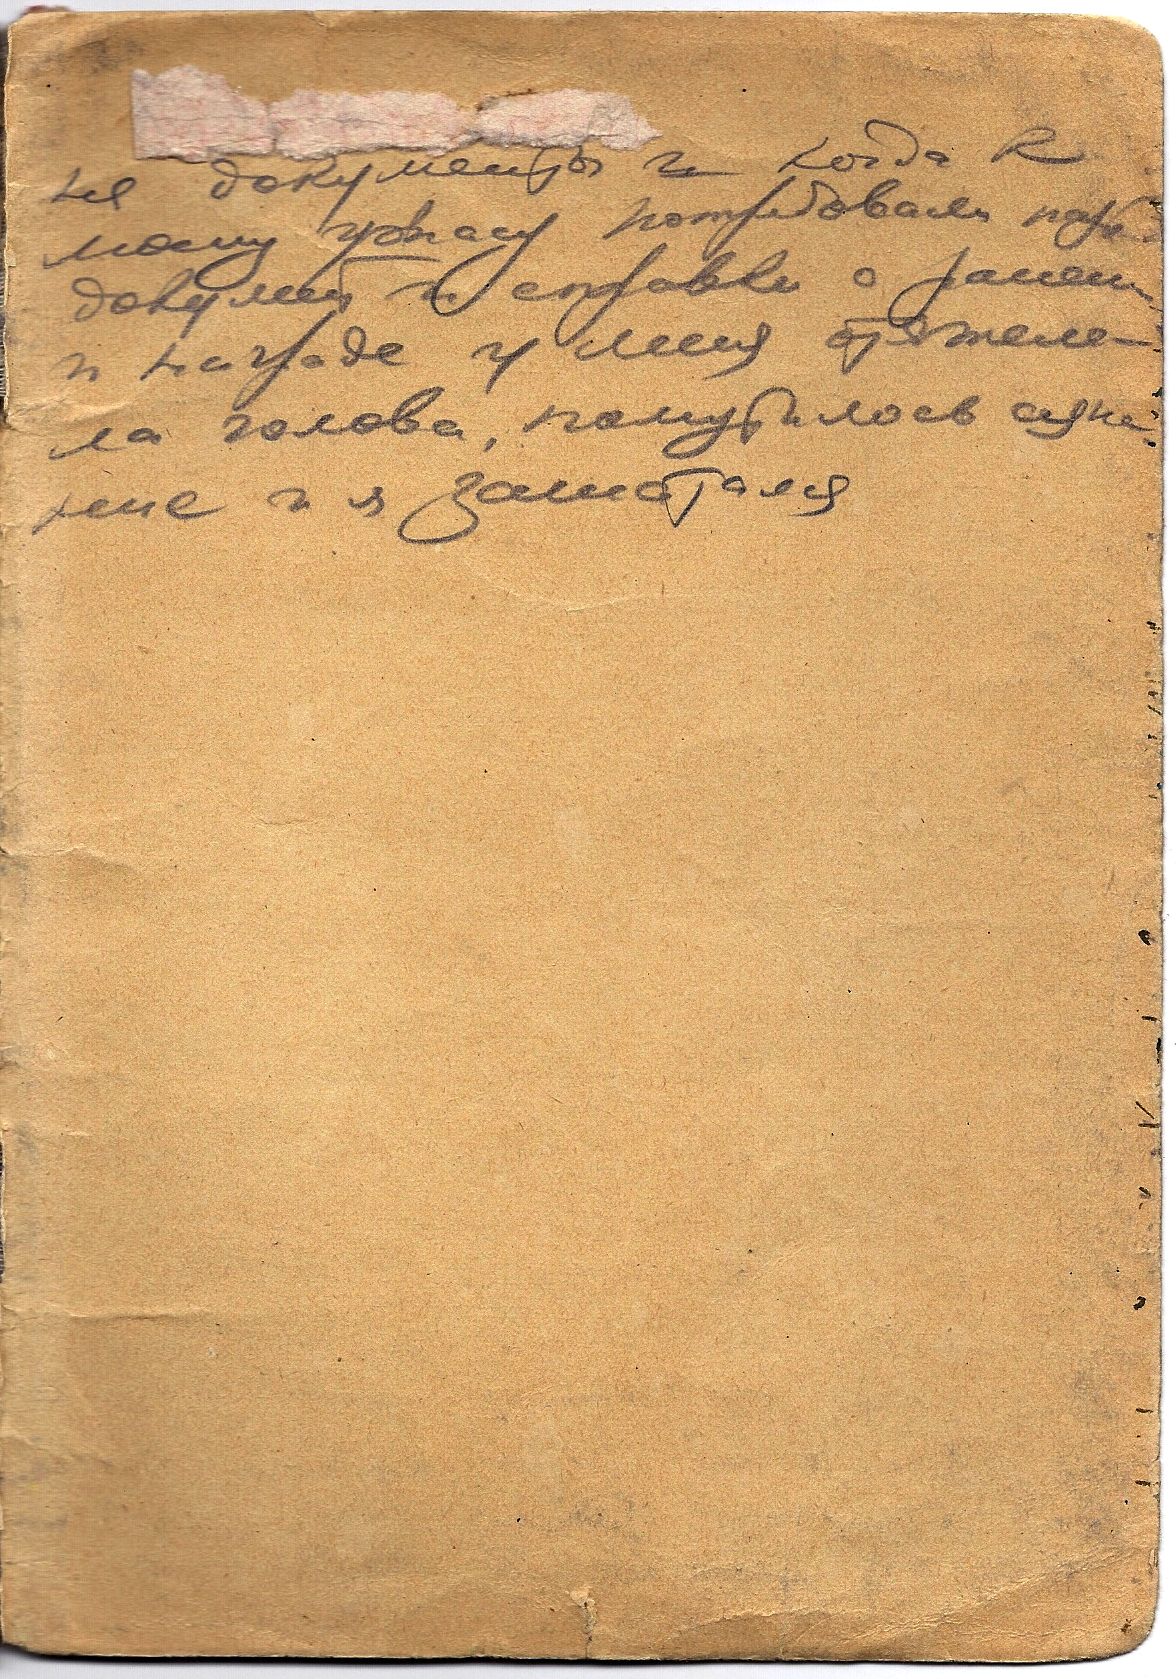 на документы и когда к
моему ужасу потребовали
документ и справки о ранен
и награде у меня отяжеле-
ла голова, помутилось
ние и я зашатался